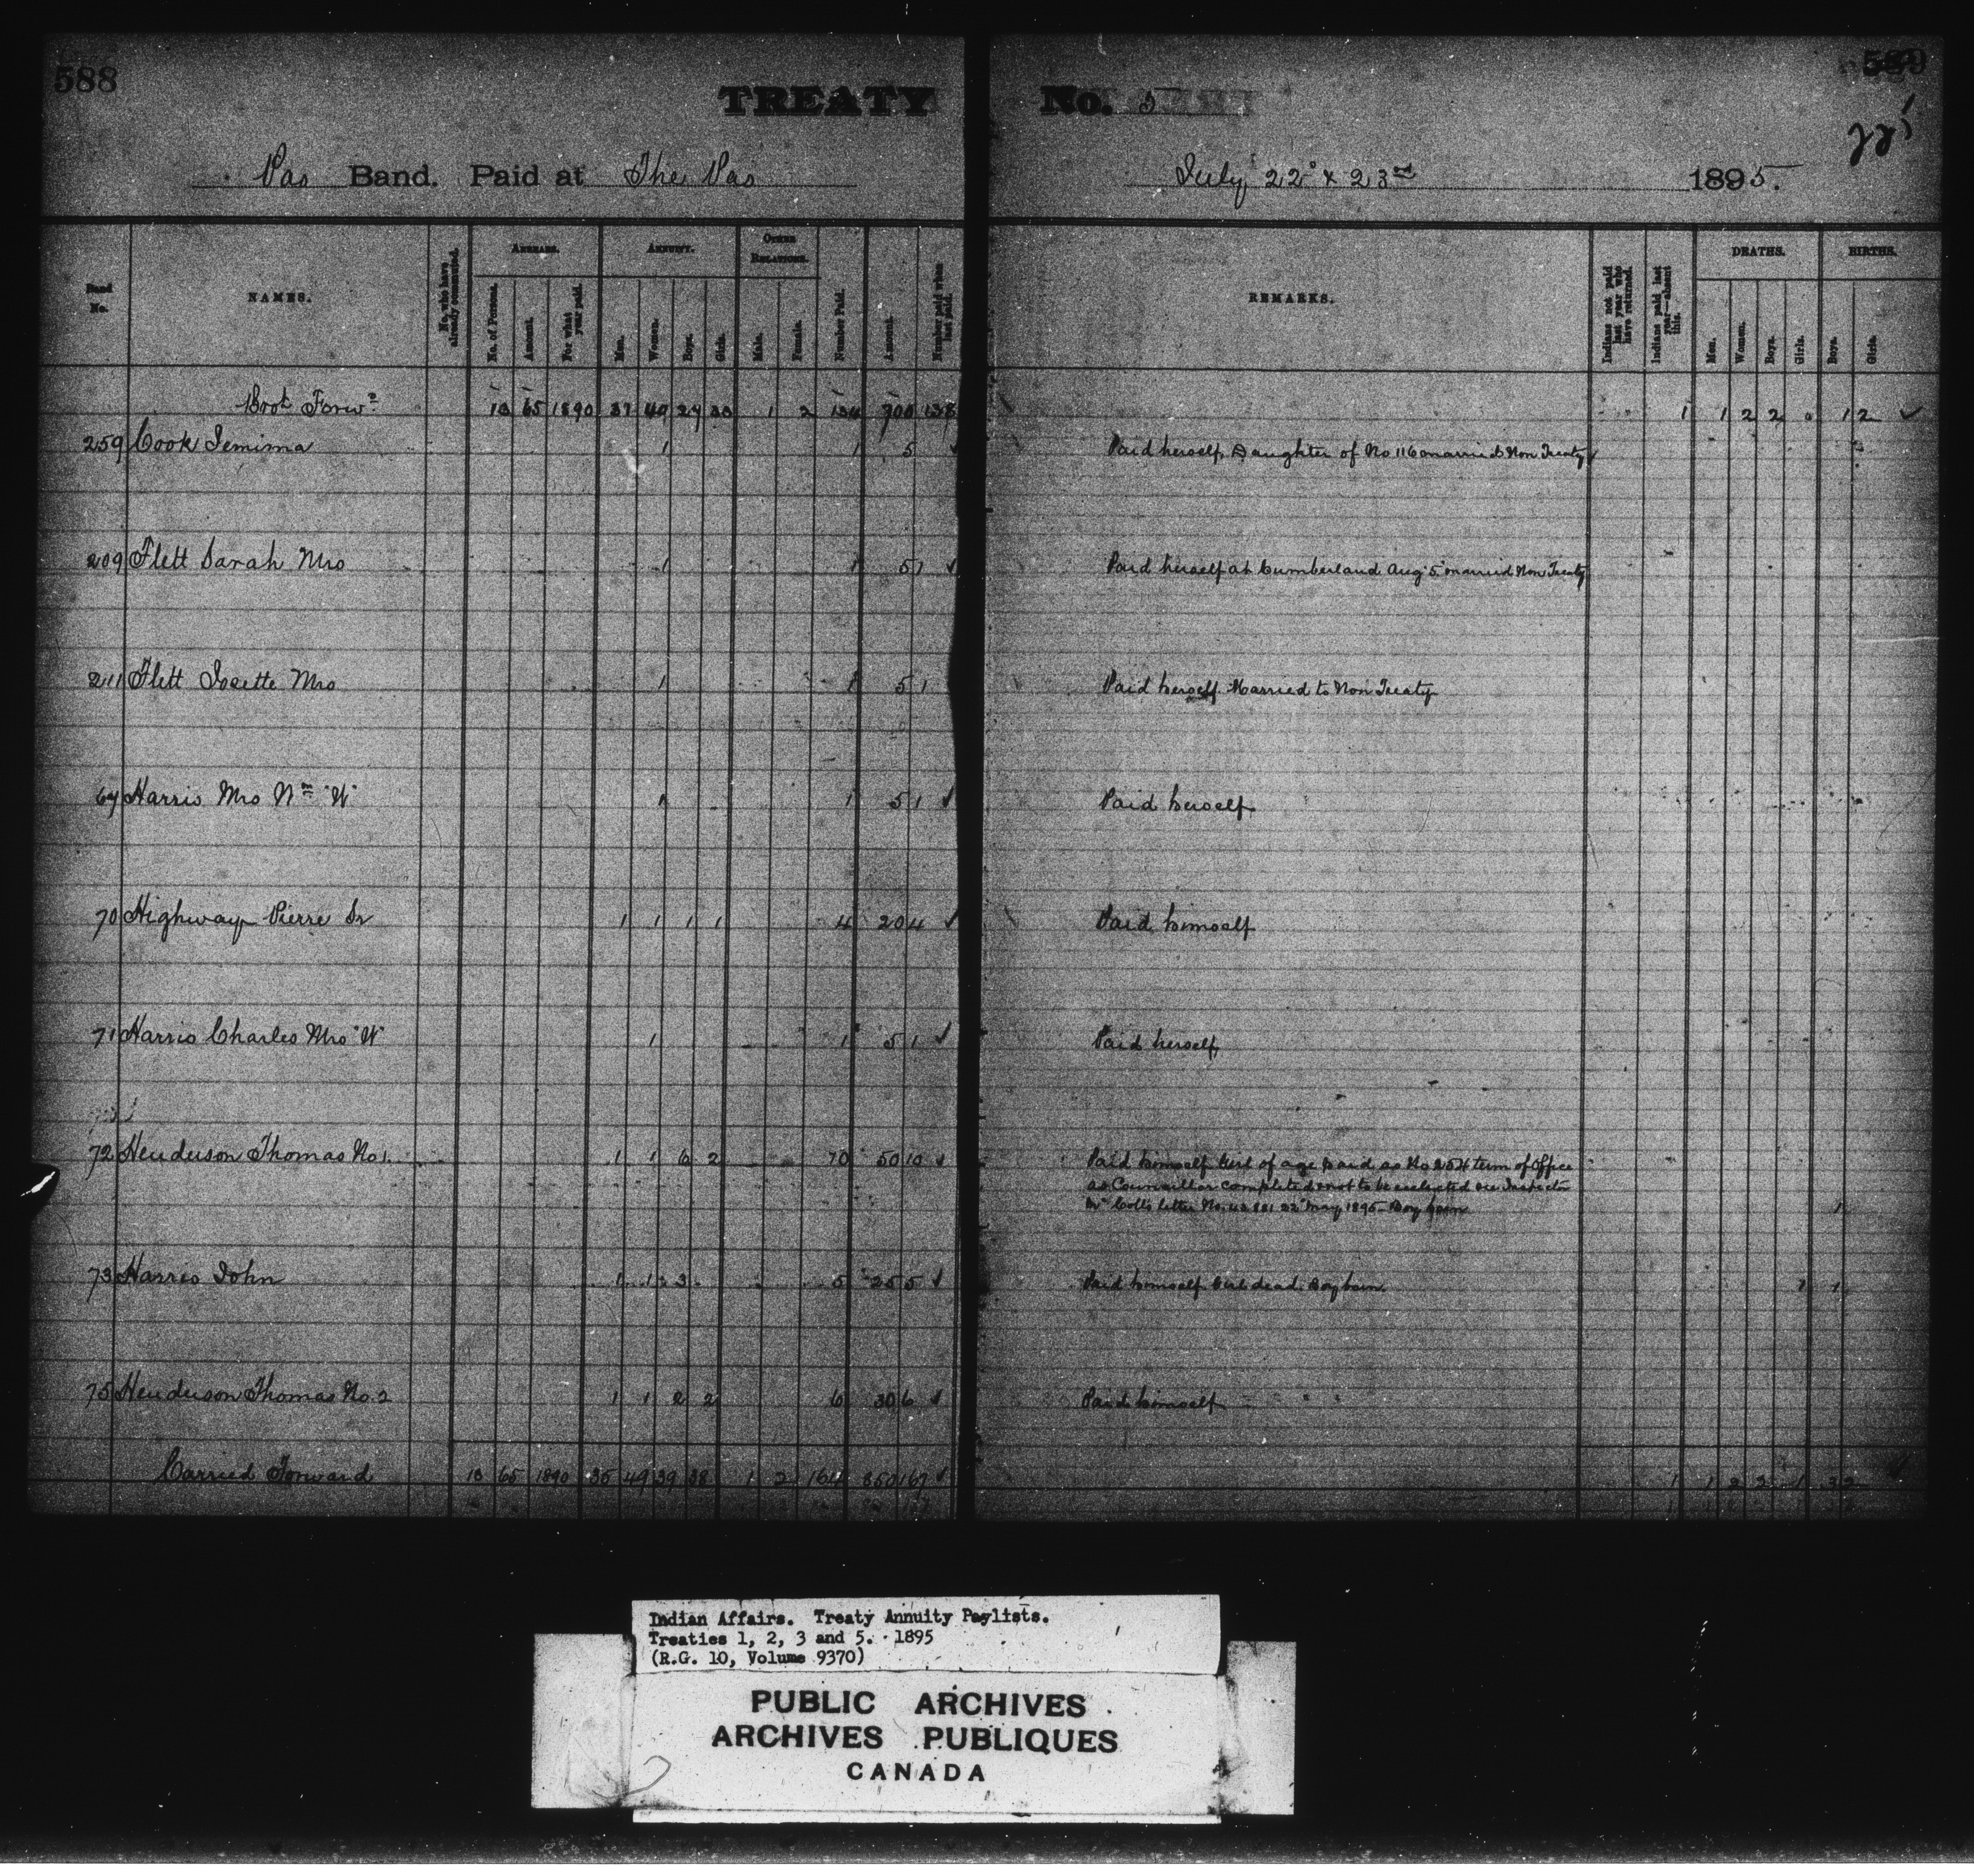 588
589
TREATY No. 5
Pas Band. Paid at The Pas July 22 & 23rd 1895.
Band No.
NAMES.
No. who have already commuted.
ARREARS.
No. of Persons.
Amount.
For what year paid.
ANNUITY.
Men.
Women.
Boys.
Girls.
OTHER RELATIONS.
Male.
Female.
Number Paid.
Amount.
Number paid when last paid.
REMARKS.
Indians not paid last year who have returned.
Indians paid last year—absent this.
DEATHS.
Men.
Women.
Boys.
Girls.
BIRTHS.
Boys.
Girls.
Brot Forwd 13 65 1890 1 2 134 700 138 1 1 2 2 0 1 2 ✓
259 Cook Jemima 1 1 5 ✓ Paid herself, Daughter of No 116 married Non Treaty
209 Flett Sarah Mrs 1 1 5 1 ✓ Paid herself at Cumberland Aug 5 married Non Treaty
211 Flett Josette Mrs 1 1 5 1 Paid herself Married to Non Treaty
67 Harris Mrs Wm "W" 1 1 5 1 ✓ Paid herself
70 Highway Pierre Sr 1 1 1 1 4 20 4 ✓ Paid himself
71 Harris Charles Mrs "W" 1 1 5 1 ✓ Paid herself
72 Henderson Thomas No 1. 1 1 6 2 10 50 10 ✓ Paid himself Girl of age paid as No 254 term of Office
as Councillor completed & not to be reelected see Inspector
letter No. 22 May 1895 - Boy born 1
73 Harris John 1 1 3 5 25 5 ✓ Paid himself Girl dead. Boy born 1 1
75 Henderson Thomas No. 2 1 1 2 2 6 30 6 ✓ Paid himself
Carried Forward 13 65 1890 35 49 39 38 1 2 164 850 167 ✓ 1 1 2 2 1 3 2
Indian Affairs. Treaty Annuity Paylists.
Treaties 1, 2, 3 and 5. 1895
(R.G. 10, Volume 9370)
PUBLIC ARCHIVES
ARCHIVES PUBLIQUES
CANADA